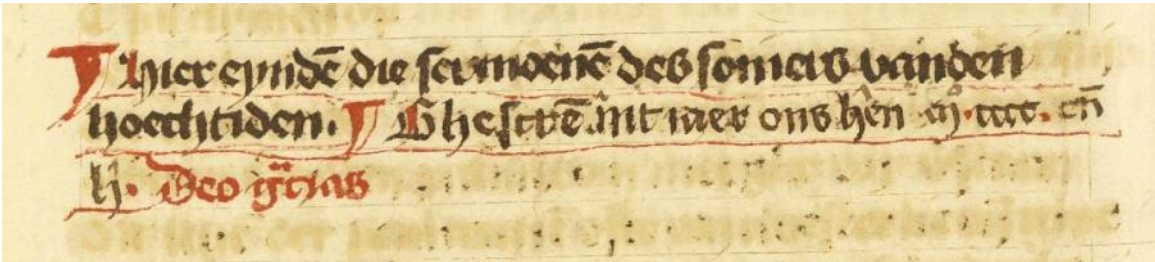 ¶ Hier eyndē die sermoenē des somers vanden
hoechtiden. ¶ Ghescrē int iaer ons hēn mº.cccc. eñ
lj. Deo grãs